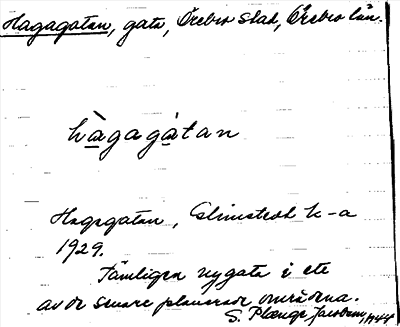 Hagagatan, gata, Örebro stad, Örebro län.
hàgagàtan
Hagagatan, Almstedt k-a
1929.
Tämligen ny gata i ett
av de senare planerade områdena.
S. Plænge Jacobson 1944